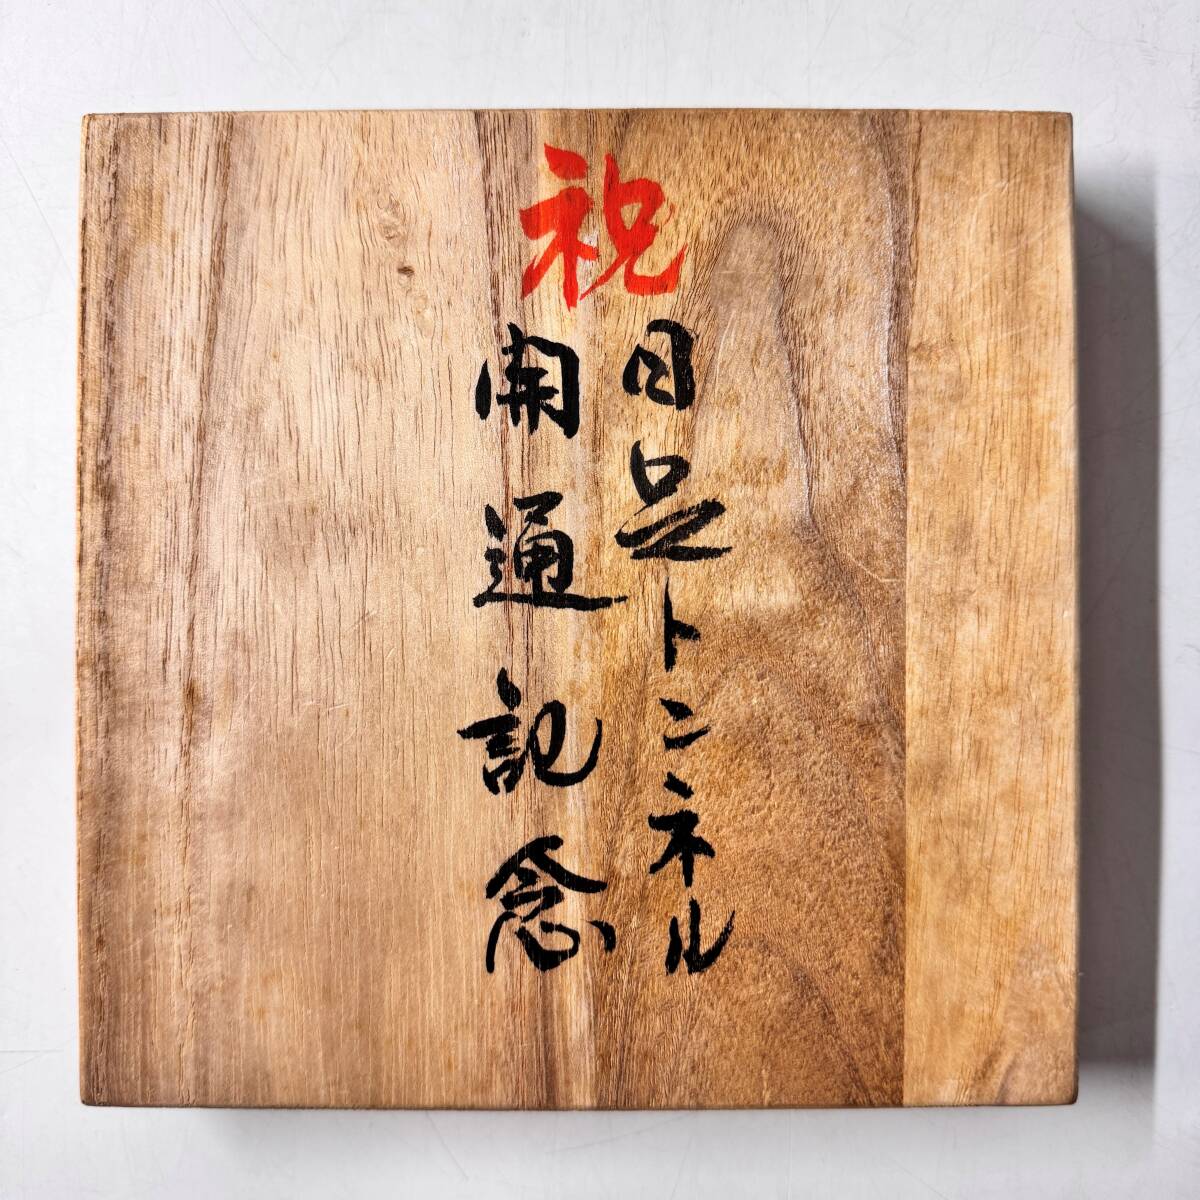 祝
日足トンネル
開通記念